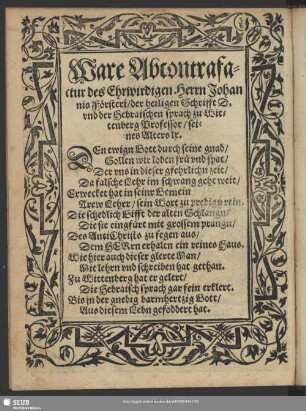 Ware Abcontrafa-
ctur des Ehrwirdigen Herrn Johan
nis Försteri/der heiligen Schrifft D.
vnd der Hebraischen sprach zu Wit-
tenberg Professor/ sei-
nes Alters
DEn ewign Gott durch seine gnad/
Sollen wir loben frü vnd spat/
Der vns in dieser gfehrlichn zeit/
Da falsche Lehr im schwang geht weit/
Erwecket hat in seinr Gemein
Trew Lehrr/ sein Wort zu predign rein.
Die schedlich Gifft der alten Schlangn/
Die sie eingfürt mit grossem prangn/
Des AntiChrists zu fegen aus/
Dem HERrn erhalen ein reines Haus.
Wie hier auch dieser glerte Man/
Mit lehrn vnd schreiben hat gethan.
Zu Wittenberg hat er gelert/
Die Hebraisch sprach gar fein erklert.
Bis in der gnedig barmhertzig Gott/
Aus diesem Lebn gefoddert hat.
SLUB